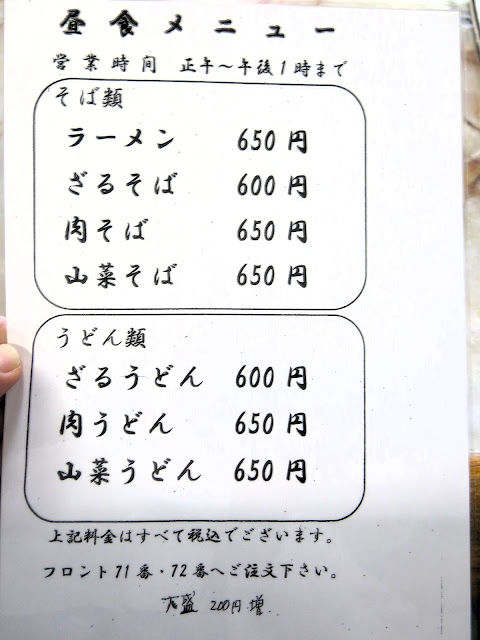 昼食メニュー
営業時間 正午～午後1時まで
そば類
ラーメン 650円
ざるそば 600円
肉そば 650円
山菜そば 650円
うどん類
ざるうどん 600円
肉うどん 650円
山菜うどん 650円
上記料金はすべて税込でございます。
フロント71番・72番へご注文下さい。
大盛 200円増